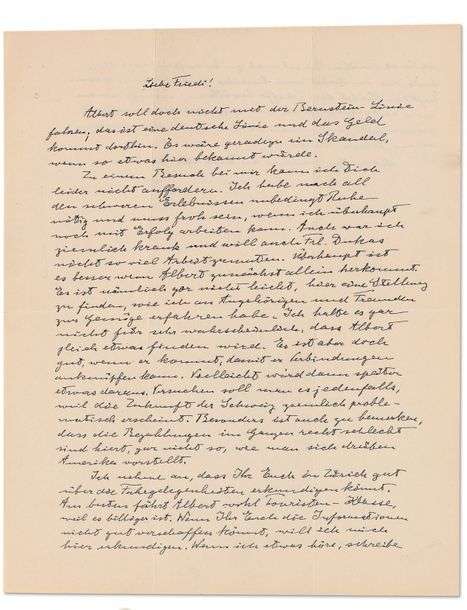 Liebe Friedi!
Albert soll doch nicht mit der Bernstein Linie
fahren, das ist eine deutsche Linie und das Geld
kommt dorthin. Es wäre geradezu ein Skandal,
wenn so etwas hier bekannt würde.
Zu einem Besuch bei mir kann ich Dich
leider nicht auffordern. Ich habe nach all
den schweren Erlebnissen unbedingt Ruhe
nötig und muss froh sein, wenn ich überhaupt
noch mit Erfolg arbeiten kann. Auch war ich
ziemlich krank und will auch Frl. Dukas
nicht so viel Arbeit zumuten. Überhaupt ist
es besser wenn Albert zunächst allein herkommt.
Es ist nämlich gar nicht leicht, hier eine Stellung
zu finden, wie ich an Angehörigen und Freunden
zur Genüge erfahren habe. Ich halte es gar
nicht für sehr wahrscheinlich, dass Albert
gleich etwas finden wird. Es ist aber doch
gut, wenn er kommt, damit er Verbindungen
anknüpfen kann. Vielleicht wird dann später
etwas daraus. Versuchen soll man es jedenfalls,
weil die Zukunft der Schweiz ziemlich proble-
matisch erscheint. Besonders ist auch zu bemerken,
dass die Bezahlungen im Ganzen recht schlecht
sind hier, gar nicht so, wie man sich drüben
Amerika vorstellt.
Ich nehme an, dass Ihr Euch in Zürich gut
über die Fahrgelegenheiten erkundigen könnt.
Am besten fährt Albert wohl Touristen-Klasse,
weil es billiger ist. Wenn Ihr Euch die Informationen
nicht gut verschaffen könnt, will ich mich
hier erkundigen. Wenn ich etwas höre, schreibe